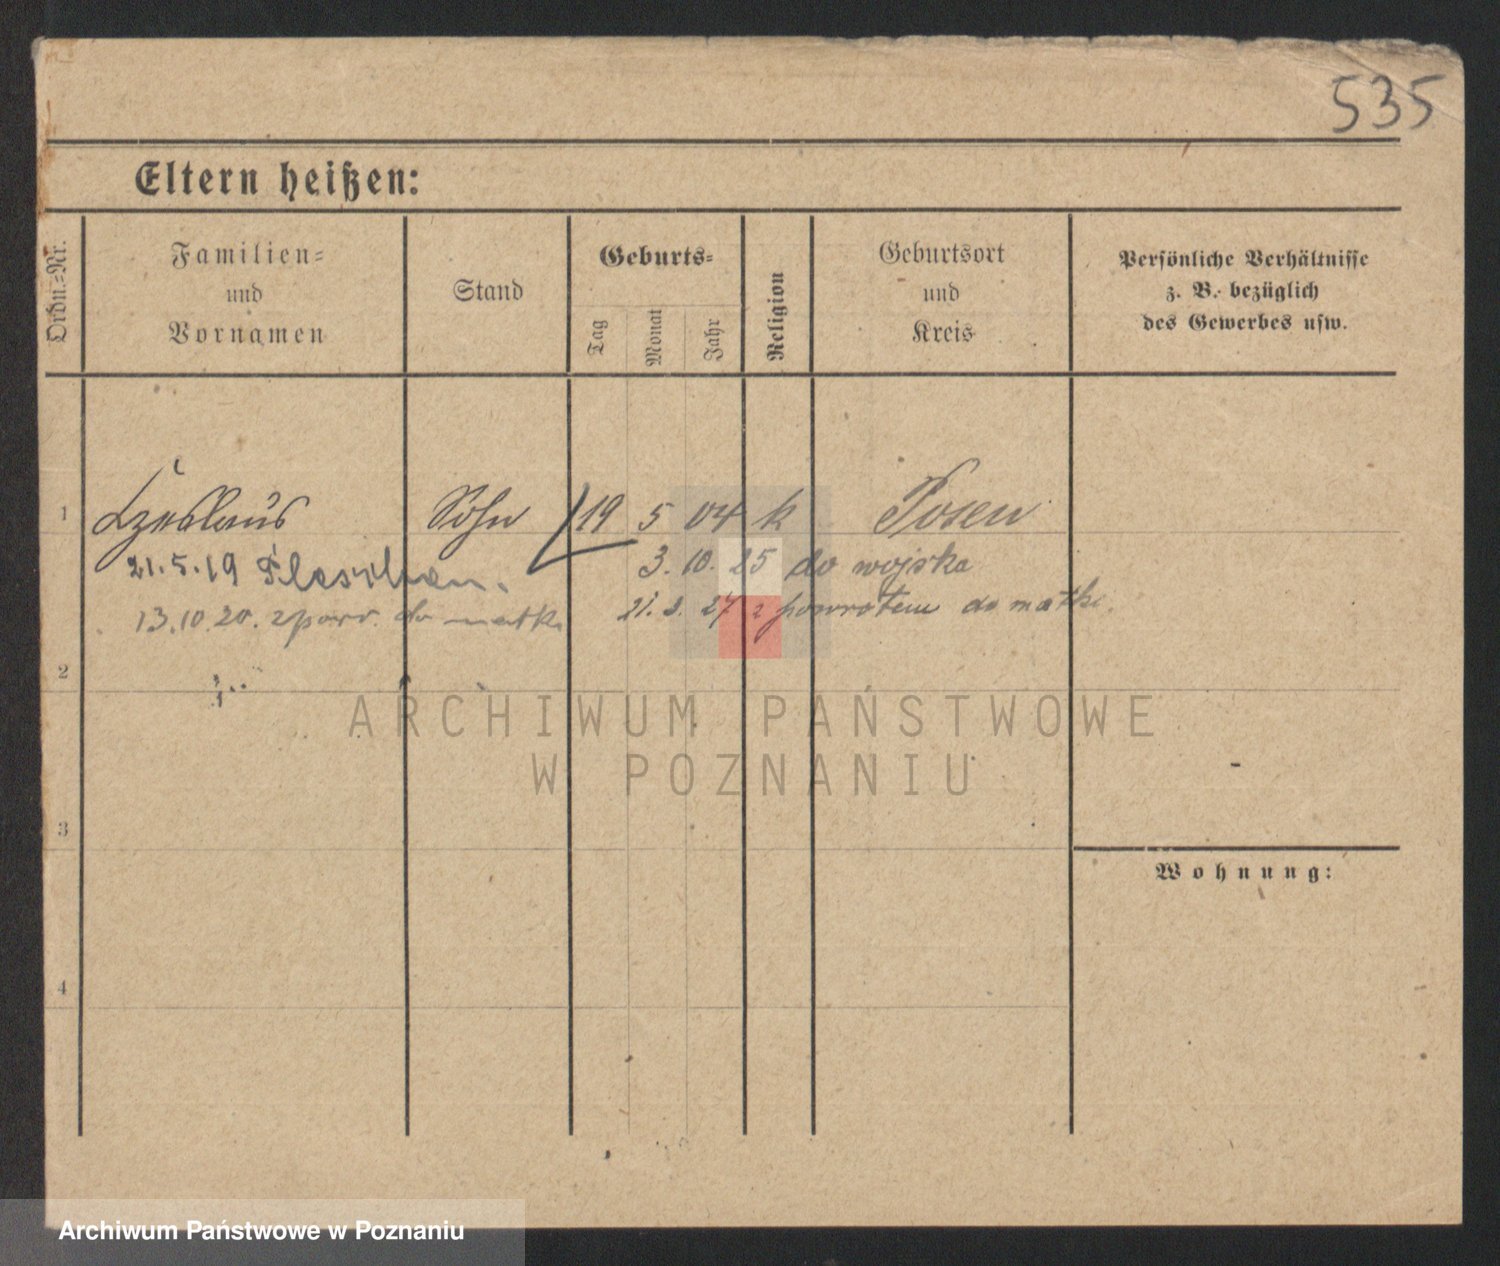 535
Eltern heißen:
Ordn.-Nr.
Familien- und Vornamen
Stand
Geburts-
Tag
Monat
Jahr
Religion
Geburtsort und Kreis
Persönliche Verhältnisse
z. B. bezüglich
des Gewerbes usw.
1 Czeslaus Sohn 19 5 04 k Posen
21.5.19 Pleschen.
3. 10. 25 do wojska
13.10.20. z powr. do matki
21. 3. 27 z powrotem do matki.
2
ARCHIWUM PAŃSTWOWE
W POZNANIU
3
Wohnung:
4
Archiwum Państwowe w Poznaniu